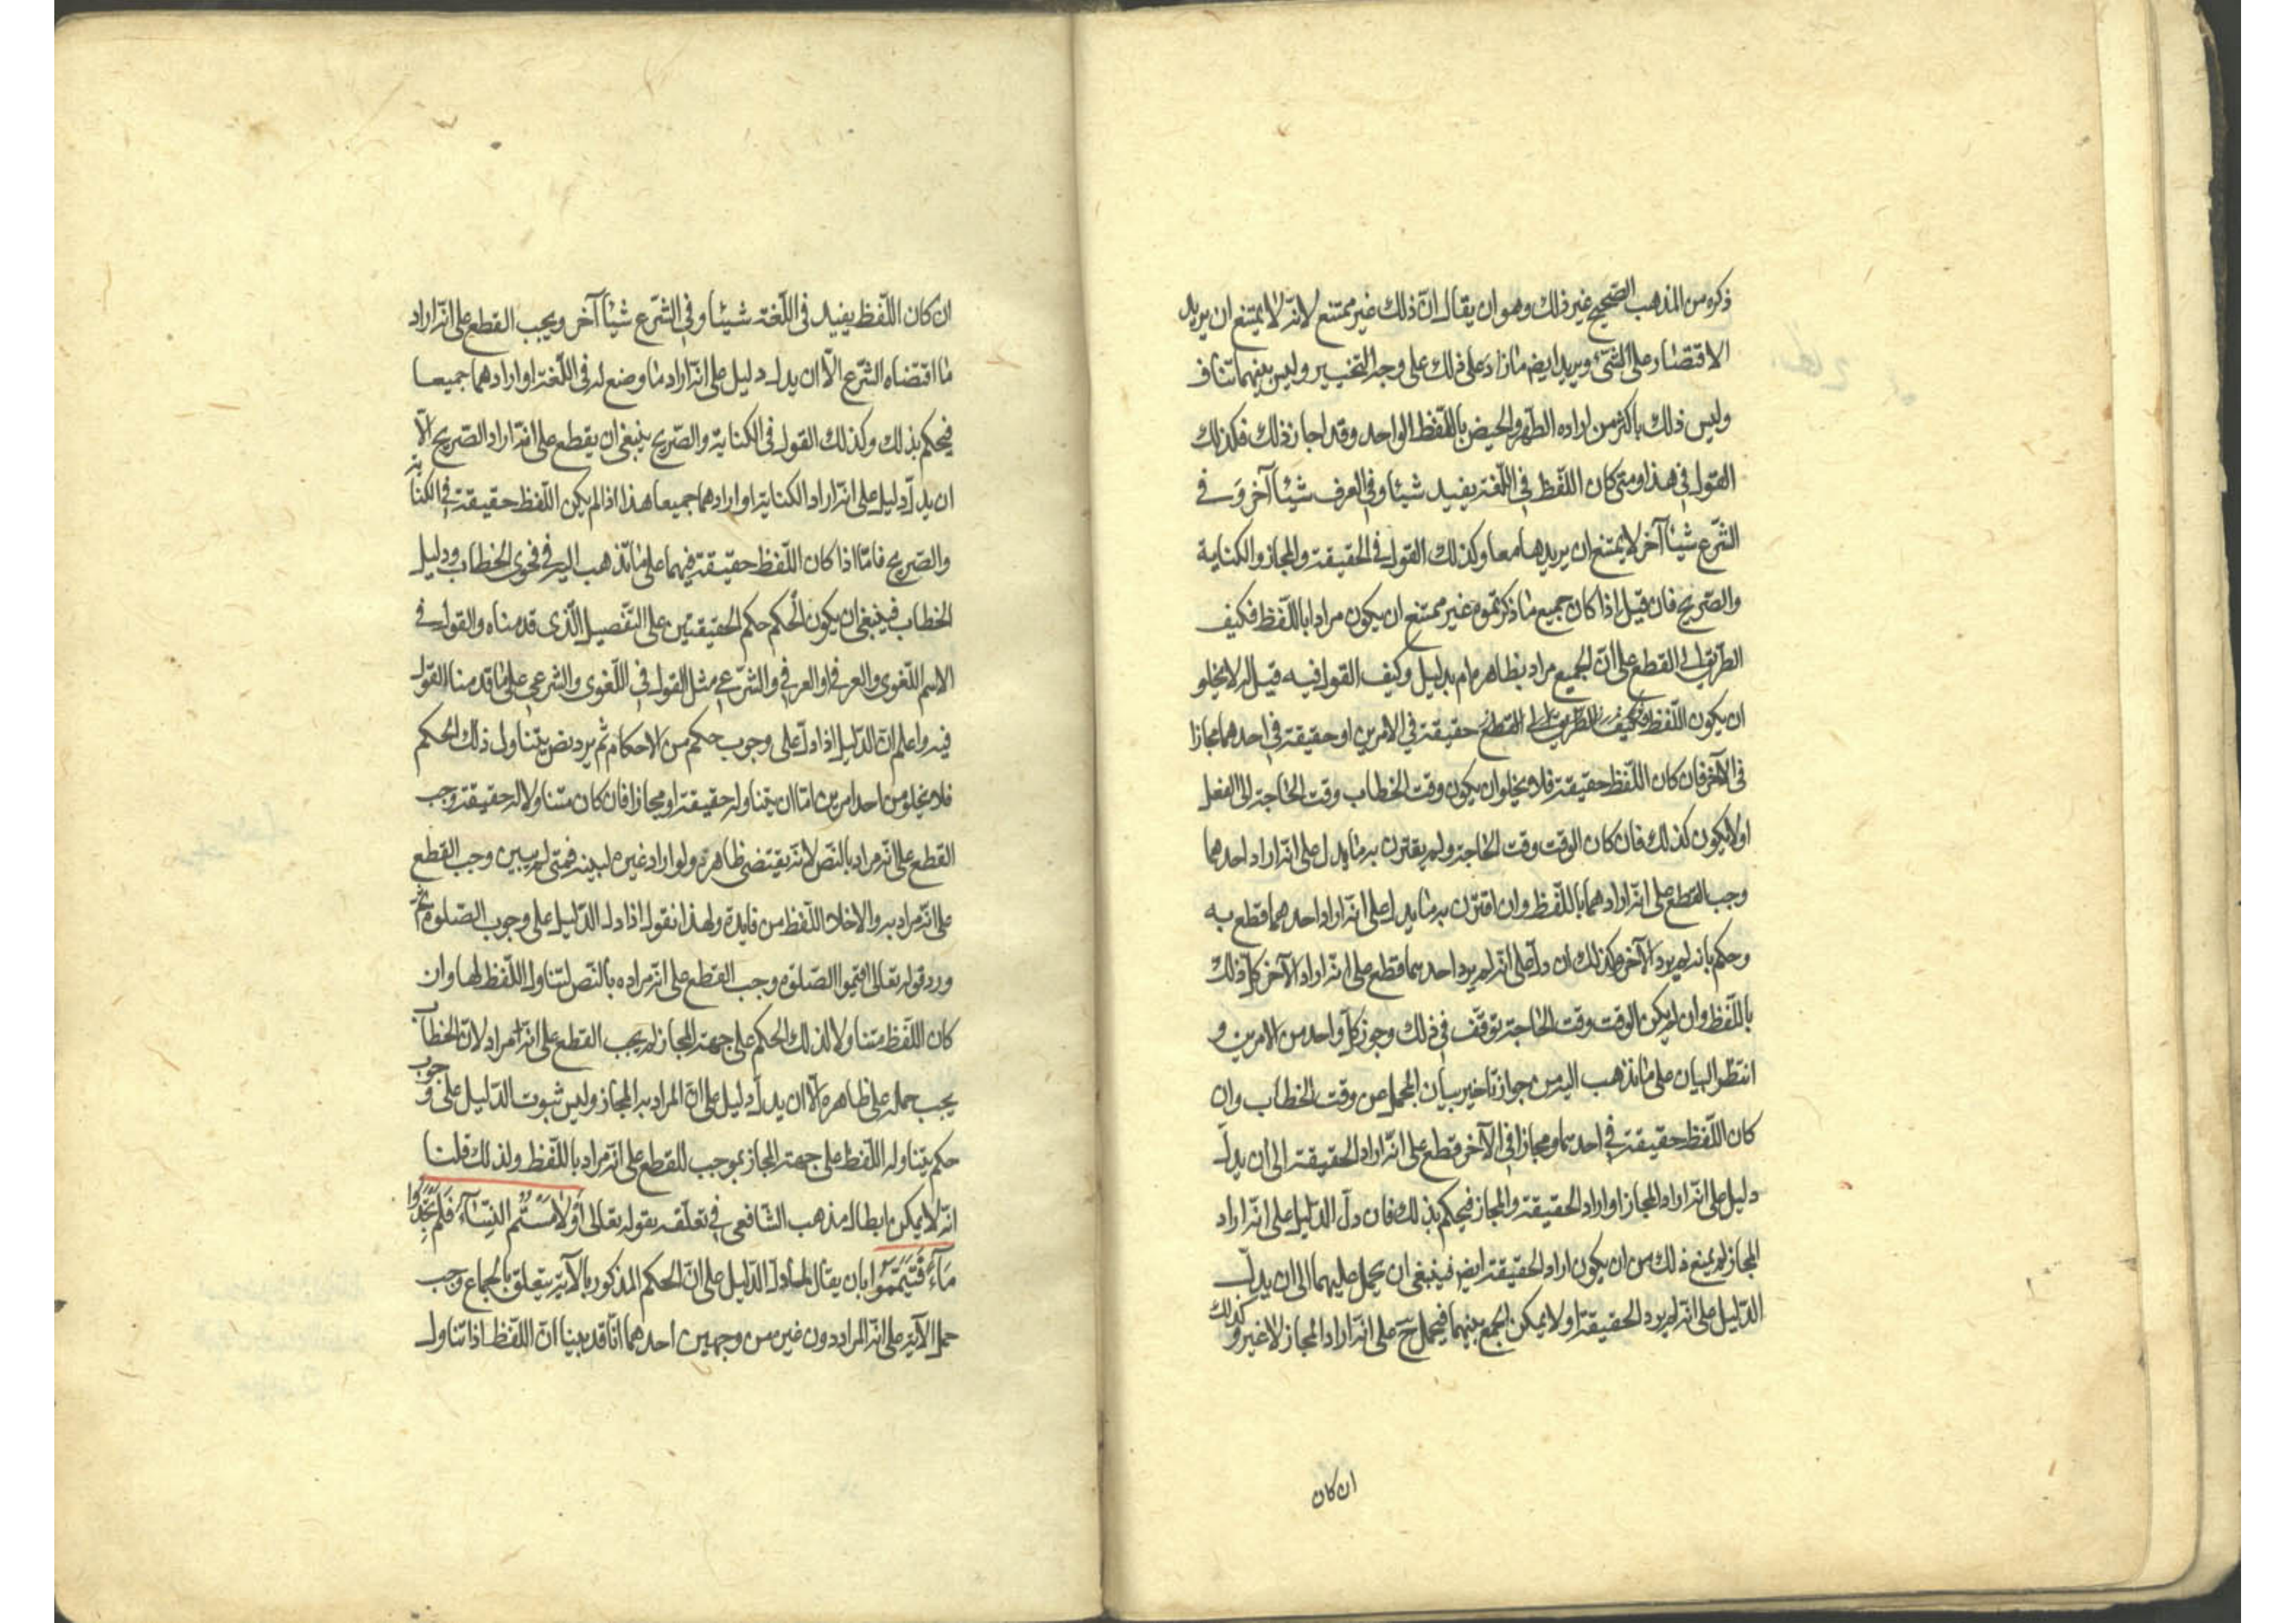 ذكره من المذهب الصحيح غير ذلك وهو ان يقال انّ ذلك غير ممتنع لانه لا يمتنع ان يريد
الاقتصار على الشئ ويريد ايض ما زاد على ذلك على وجه التخيير وليس بينهما تناف
وليس ذلك باكثر من اراده الطهر والحيض باللّفظ الواحد وقد اجاز ذلك فكذلك
القول في هذا ومتى كان اللّفظ في اللّغة يفيد شيئا وفي العرف شيئا آخر وفي
الشّرع شيئا آخر لا يمتنع ان يريدها معا وكذلك القول في الحقيقة والمجاز والكناية
والصّريح فان قيل اذا كان جميع ما ذكرتموه غير ممتنع ان يكون مرادا باللّفظ فكيف
الطّريق الى القطع على انّ الجميع مراد بظاهره ام بدليل وكيف القول فيه قيل له لا يخلو
ان يكون اللّفظ وكيف الطريق الى القطع حقيقة في الامرين او حقيقة في احدهما مجازا
في الآخر فان كان اللّفظ حقيقة فلا يخلو ان يكون وقت الخطاب وقت الحاجة الى الفعل
او لا يكون كذلك فان كان الوقت وقت الحاجة ولم يقترن به ما يدل على انّه اراد احدهما
وجب القطع على انّه ارادهما باللّفظ وان اقترن به ما يدل على انّه اراد احدهما قطع به
وحكم بانه لم يرد الآخر وكذلك ان دلّ على انّه لم يرد احدهما قطع على انّه اراد الآخر كلّ ذلك
باللّفظ وان لم يكن الوقت وقت الحاجة توقّف في ذلك وجوز كلّ واحد من الامرين و
انتظر البيان على ما نذهب اليه من جواز تاخير بيان المجمل عن وقت الخطاب وان
كان اللّفظ حقيقة في احدهما ومجازا في الآخر قطع على انّه اراد الحقيقة الى ان يدلّ
دليل على انّه اراد المجاز او اراد الحقيقة والمجاز فيحكم بذلك فان دلّ الدّليل على انّه اراد
المجاز لم يمنع ذلك من ان يكون اراد الحقيقة ايض فينبغي ان يحمل عليهما الى ان يدلّ
الدّليل على انّه لم يرد الحقيقة او لا يمكن الجمع بينهما فيحمل ح على انّه اراد المجاز لا غير وكذلك
ان كان
ان كان اللّفظ يفيد في اللّغة شيئا وفي الشّرع شيئا آخر ويجب القطع على انّه اراد
ما اقتضاه الشّرع الّا ان يدل دليل على انّه اراد ما وضع له في اللّغة او ارادهما جميعا
فيحكم بذلك وكذلك القول في الكناية والصّريح ينبغي ان يقطع على انّه اراد الصّريح الّا
ان يدلّ دليل على انّه اراد الكناية او ارادهما جميعا هذا اذا لم يكن اللّفظ حقيقة في الكناية
والصّريح فامّا اذا كان اللّفظ حقيقة فيهما على ما نذهب اليه في فحوى الخطاب ودليل
الخطاب فينبغي ان يكون الحكم حكم الحقيقتين على التّفصيل الّذي قدمناه والقول في
الاسم اللّغوى والعرفي او العرفي والشّرعي مثل القول في اللّغوى والشرعي على ما قدمنا القول
فيه واعلم انّ الدّليل اذا دلّ على وجوب حكم من الاحكام ثم يرد نص يتناول ذلك الحكم
فلا يخلو من احد امرين امّا ان يتناوله حقيقة او مجازا فان كان متناولا له حقيقة وجب
القطع على انّه مراد بالنّص لانّه يقتضى ظاهره ولو اراد غيره لبينه فمتى لم يبين وجب القطع
على انّه مراد به والا خلا اللّفظ من فايدة ولهذا نقول اذا دل الدّليل على وجوب الصّلوة ثم
ورد قوله تعالى اقيموا الصّلوة وجب القطع على انّه مراده بالنّص لتناول اللّفظ لها وان
كان اللّفظ متناولا لذلك الحكم على جهة المجاز لم يجب القطع على انّه مراد لانّ الخطاب
يجب حمله على ظاهره الّا ان يدلّ دليل على انّ المراد به المجاز وليس ثبوت الدّليل على وجوب
حكم يتناوله اللّفظ على جهة المجاز بموجب للقطع على انّه مراد باللّفظ ولذلك قلنا
انّه لا يمكن ابطال مذهب الشّافعي في تعلّقه بقوله تعالى أَوْ لَامَسْتُمُ النِّسَاءَ فَلَمْ تَجِدُوا
مَاءً فَتَيَمَّمُوا بان يقال لما دلّ الدّليل على انّ الحكم المذكور بالآية يتعلّق بالجماع وجب
حمل الآية على انّه المراد دون غيره من وجهين احدهما انّا قد بينا انّ اللّفظ اذا تناول